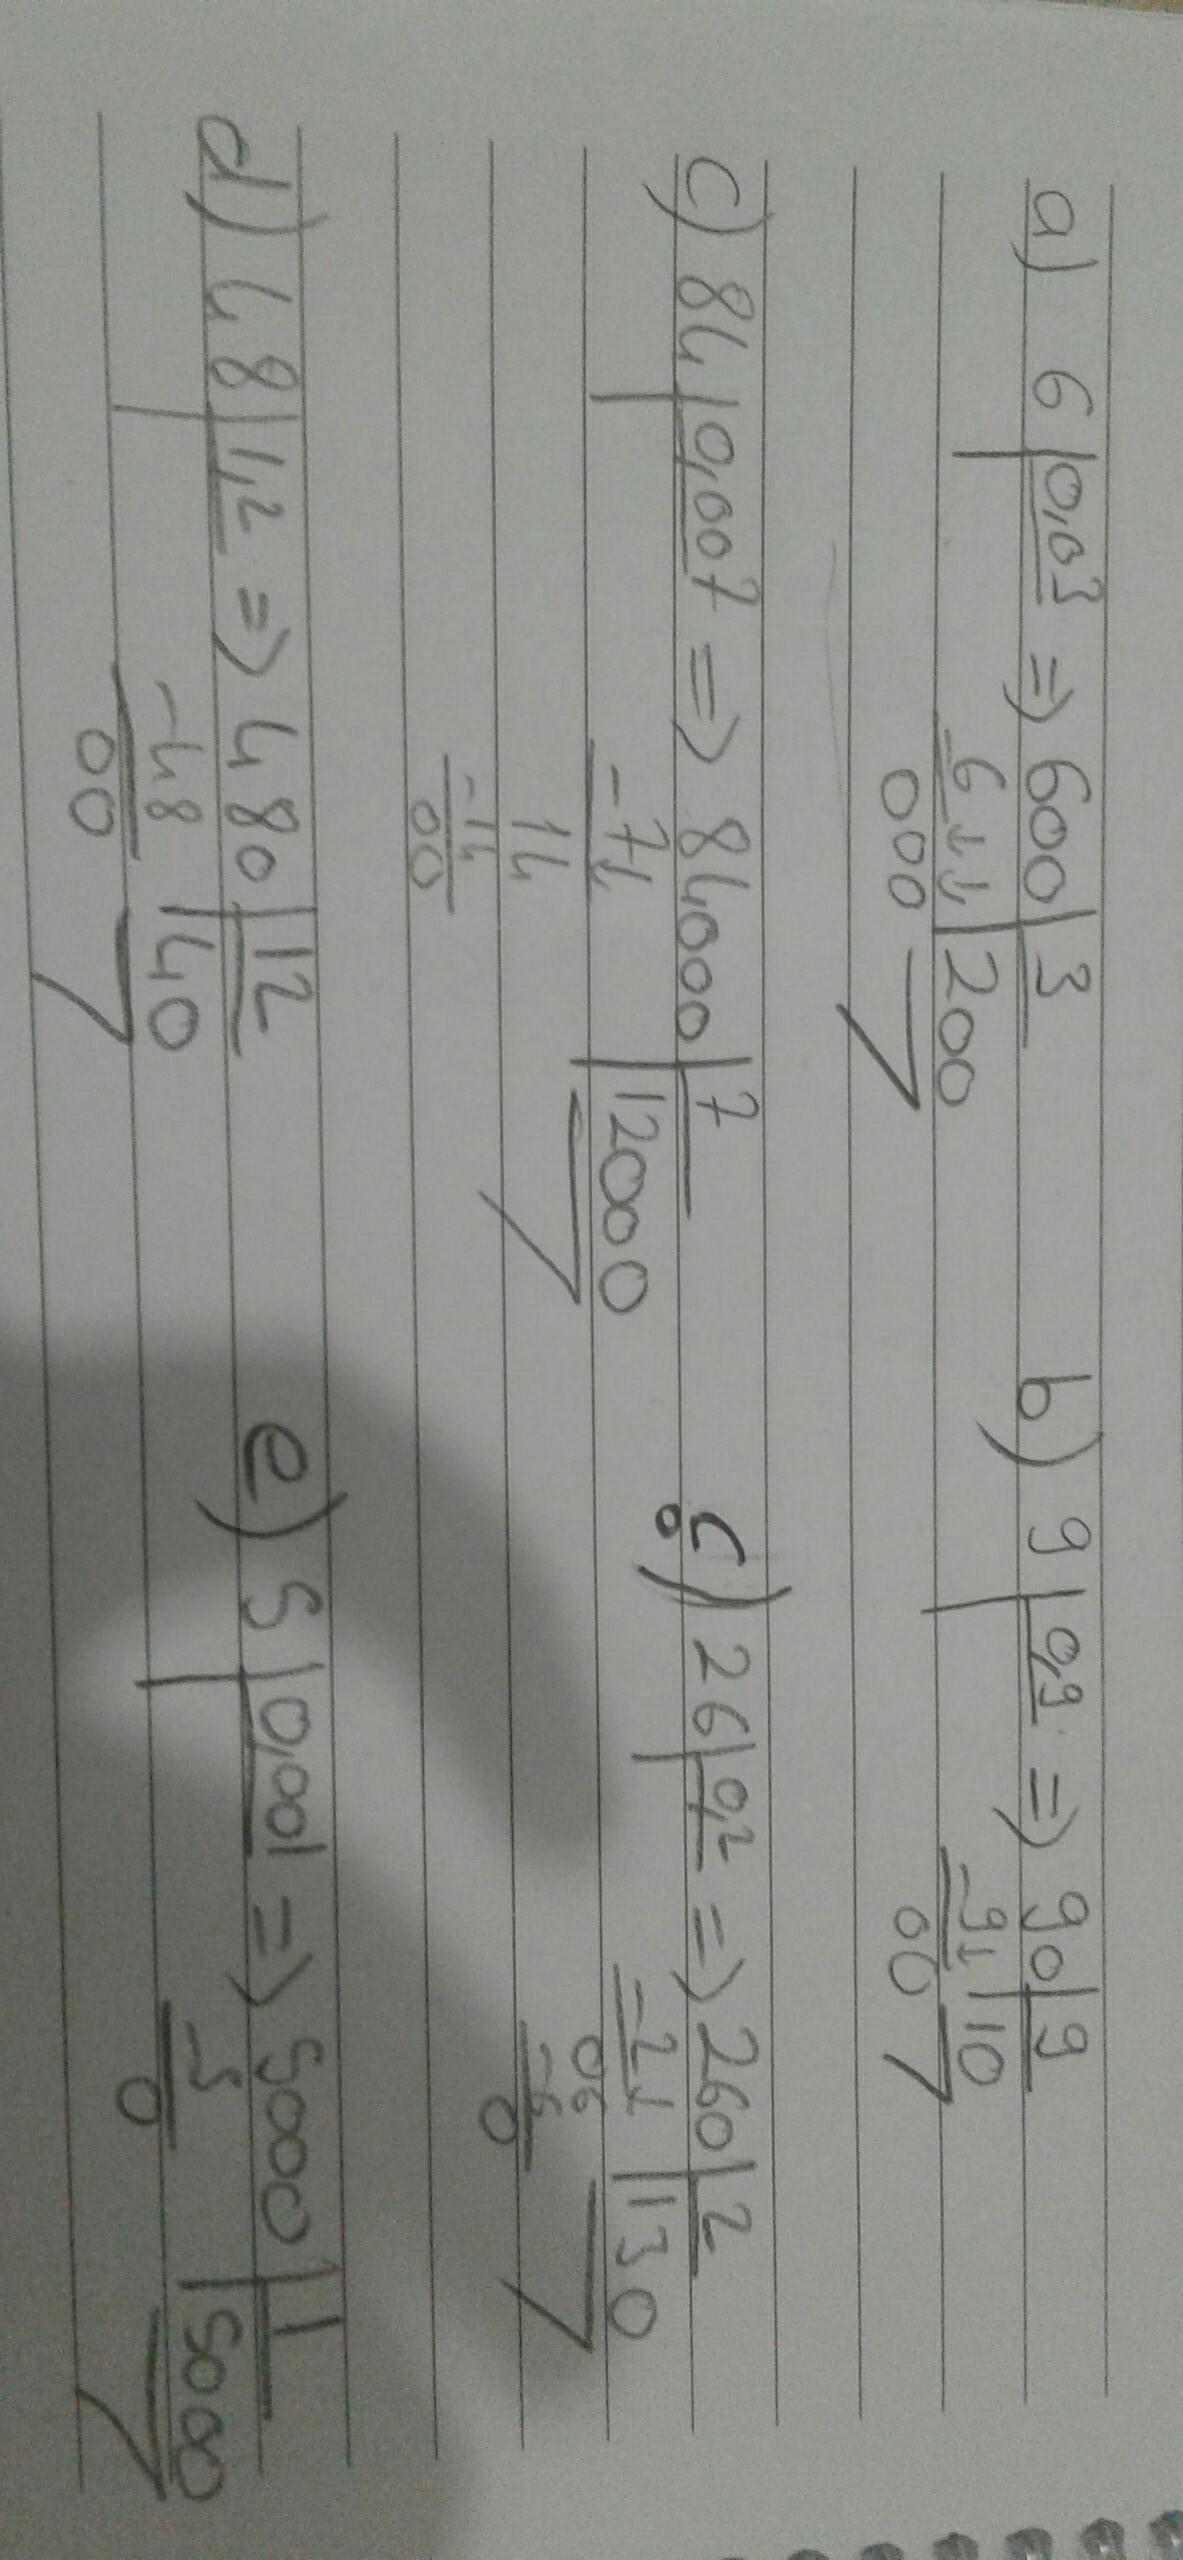 a) 6 | 0,03 => 600 | 3
-6↓↓ | 200
000
b) 9 | 0,9 => 90 | 9
-9↓ | 10
00
c) 84 | 0,007 => 84000 | 7
-7↓ | 12000
14
-14
00
ç) 26 | 0,2 => 260 | 2
-2↓ | 130
06
-6
0
d) 48 | 1,2 => 480 | 12
-48 | 40
00
e) 5 | 0,001 => 5000 | 1
-5 | 5000
0